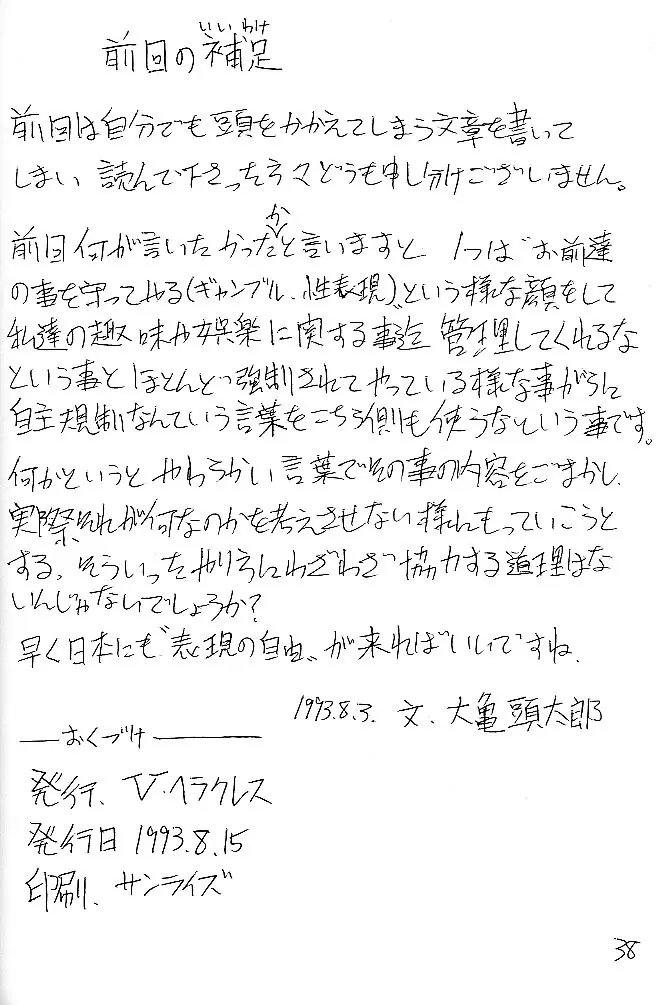 いいわけ
前回の補足
前回は自分でも頭をかかえてしまう文章を書いて
しまい 読んで下さった方々どうも申し分けございません。
か
前回何が言いたかったと言いますと 1つは〝お前達
の事を守ってやる(ギャンブル、性表現)〟という様な顔をして
私達の趣味や娯楽に関する事迄 管理してくれるな
という事と ほとんど強制されてやっている様な事がらに
自主規制なんていう言葉をこちら側も使うなという事です。
何かというと やわらかい言葉でその事の内容をごまかし、
実際それが何なのかを考えさせない様にもっていこうと
する、そういったやり方にわざわざ協力する道理はな
いんじゃないでしょうか?
早く日本にも〝表現の自由〟が来ればいいですね。
1993.8.3. 文、大亀頭太郎
―おくづけ―
発行、V・ヘラクレス
発行日 1993.8.15
印刷、サンライズ
38